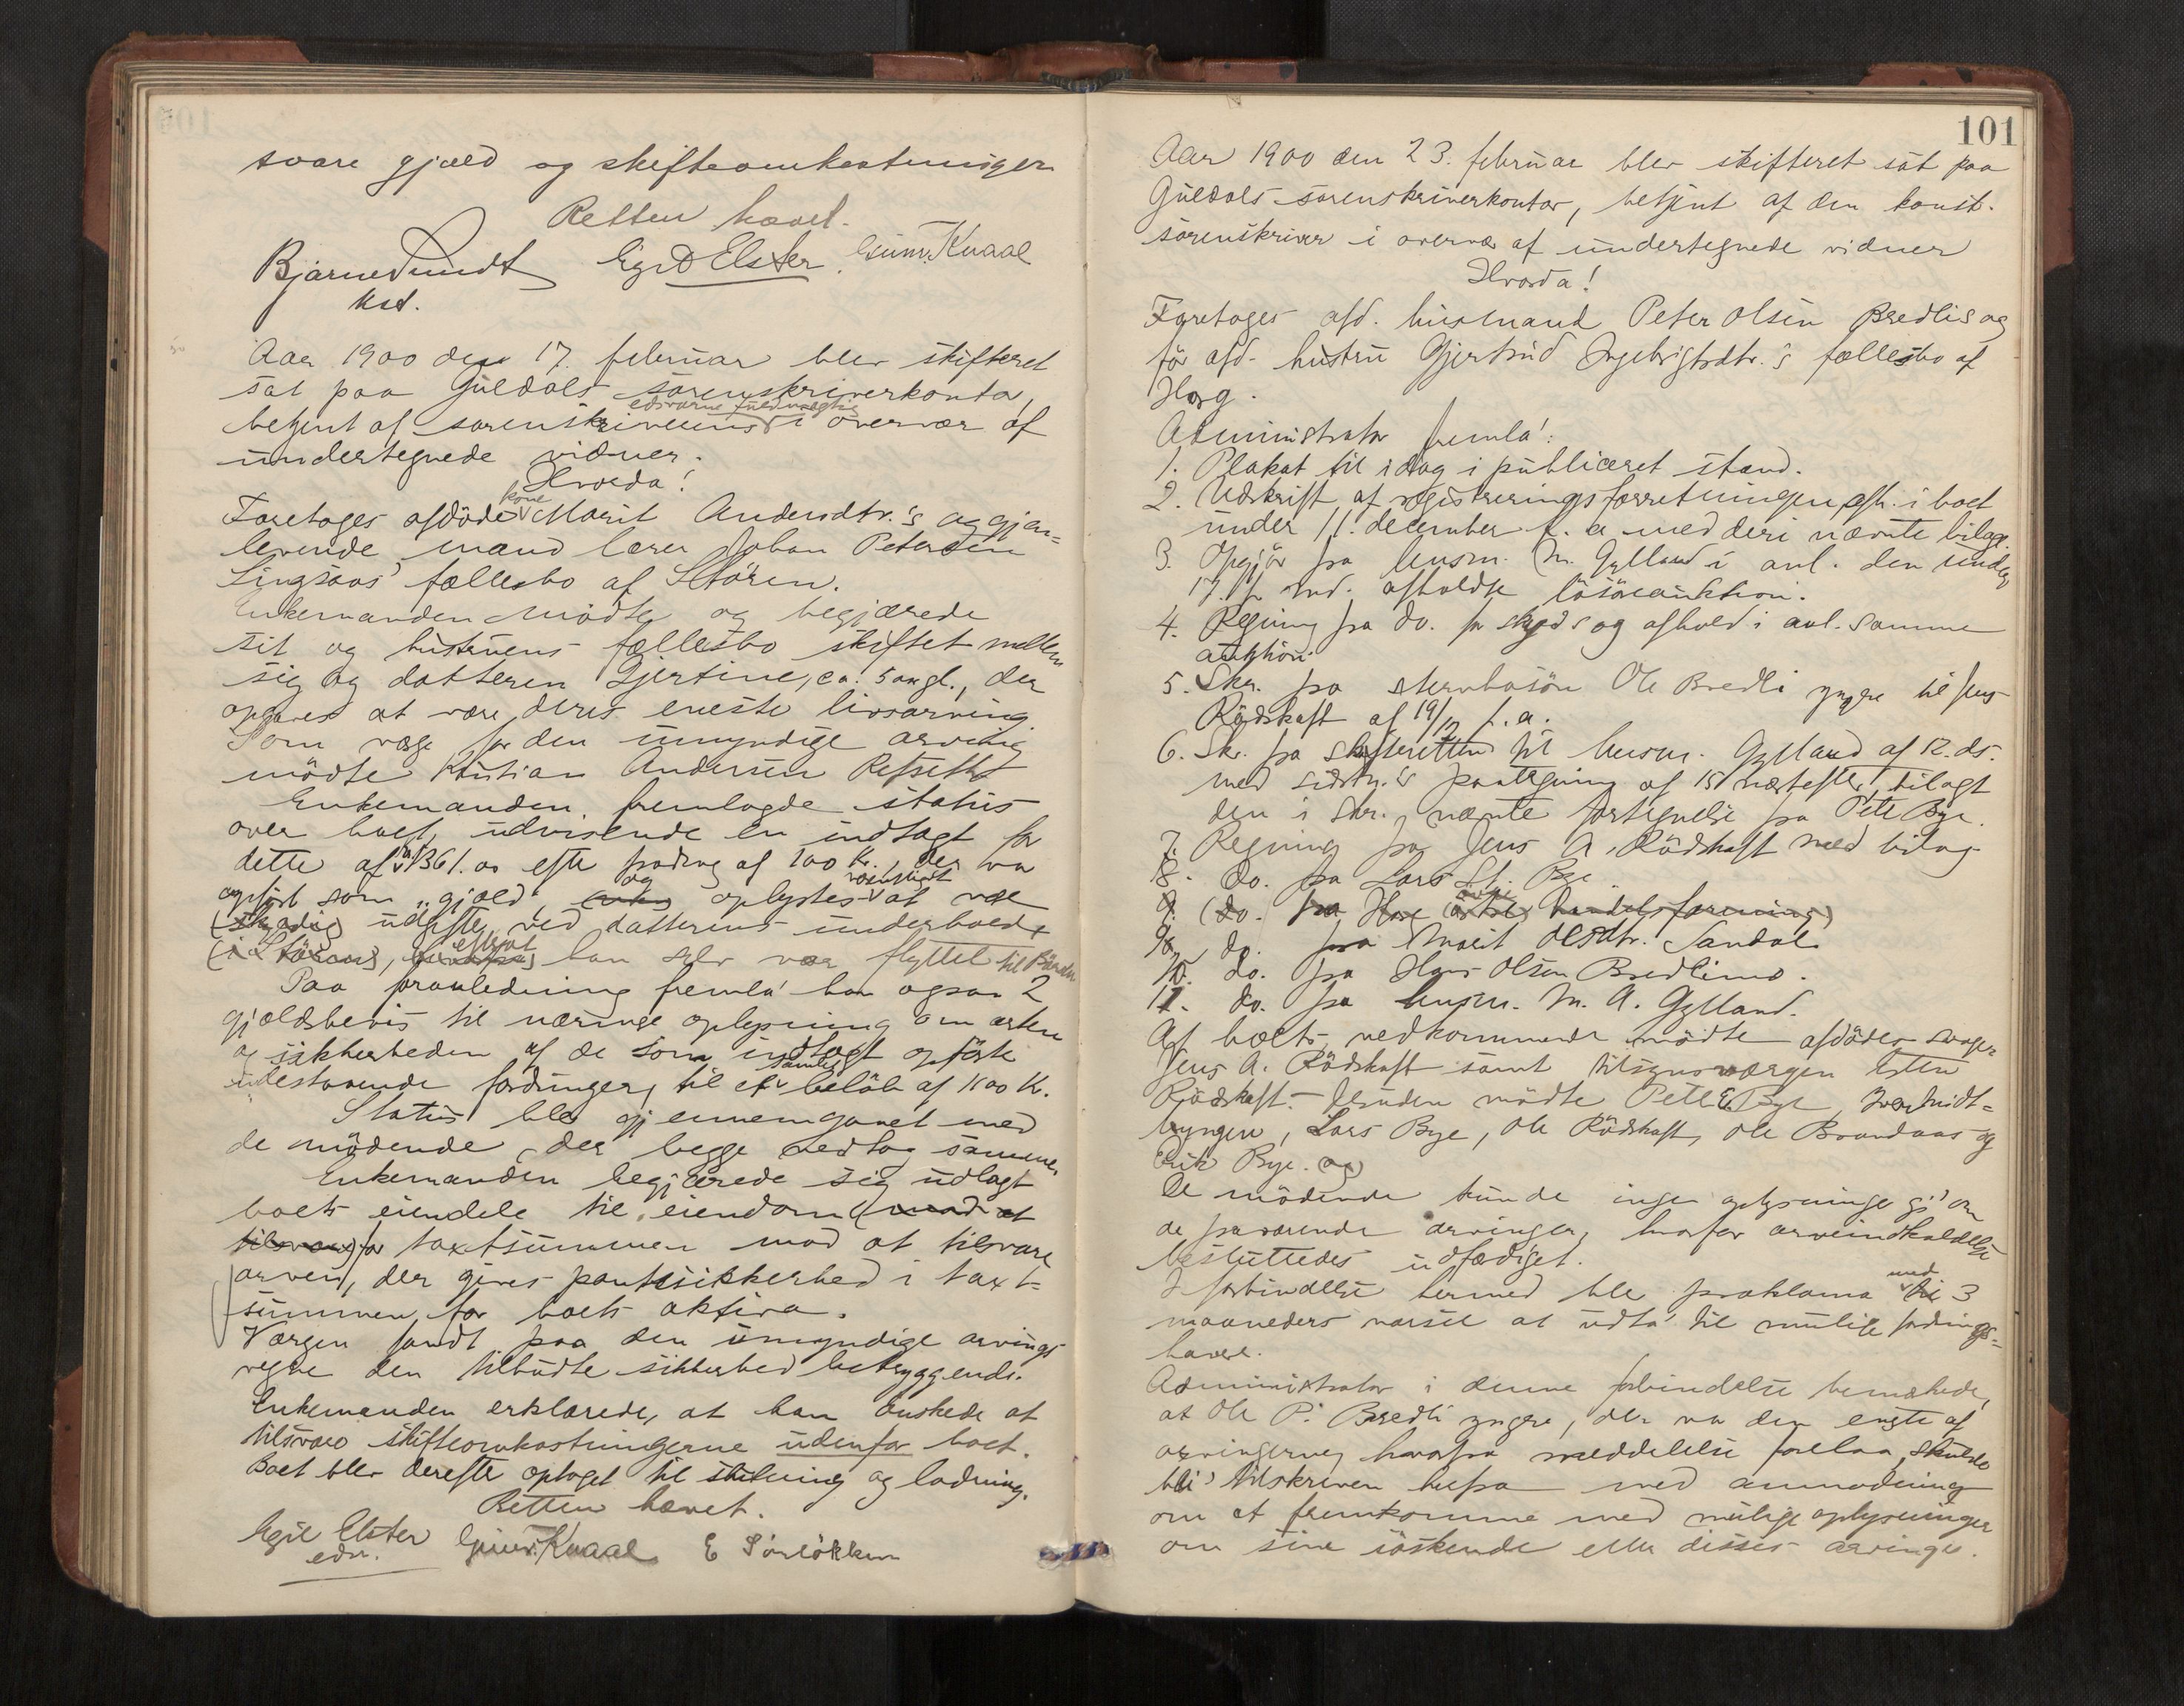 svare gjæld og skifteomkostninger
Retten hævet.
Bjarne Sundt Egil Elster. Gunv. Knaal
kst.
Aar 1900 den 17. februar blev skifteret
sat paa Guldals sorenskriverkontor,
betjent af sorenskriverens edsvorne fuldmægtig i overvær af
undertegnede vidner.
Hvorda!
Foretoges afdöde kone Marit Andersdtr.'s og gjen=
levende mand lærer Johan Petersen
Singsaas' fællesbo af Stören.
Enkemanden mödte og begjærede
sit og hustruens fællesbo skiftet mellem
sig og datteren Gjertine, ca. 5 aar gl., der
opgaves at være deres eneste livsarving.
Som værge for den umyndige arving
mödte Kristian Andersen Refseth
Enkemanden fremlagde status
over boet, udvisende en indtægt for
dette af 1361.00 efter fradrag af 100 Kr., der var
opfört som "gjæld", og oplystes at være
udgifter ved datterens underhold
(i Stören), efterat han selv var flyttet til
Paa foranledning fremla' han ogsaa 2
gjældsbevis til nærmere oplysning om arten
og sikkerheden af de som indtægt opförte
udestaaende fordringer, til et samlet belöb af 1100 Kr.
Status blev gjennemgaaet med
de mödende, der begge vedtog samme.
Enkemanden begjærede sig udlagt
boets eiendele til eiendom (mod at
tilsvare) for taxtsummen mod at tilsvare
arven, der gives pantesikkerhed i taxt=
summen for boets aktiva.
Værgen fandt paa den umyndige arvings
vegne den tilbudte sikkerhed betryggende.
Enkemanden erklærede, at han önskede at
tilsvare skifteomkostningerne udenfor boet.
Boet blev derefter optaget til slutning og lodning.
Retten hævet.
Egil Elster Gunv. Knaal E Sörlökken
edsv.
101
Aar 1900 den 23. februar blev skifteret sat paa
Guldals sorenskriverkontor, betjent af den konst.
sorenskriver i overvær af undertegnede vidner
Hvorda!
Foretoges afd. husmand Peter Olsen Bredlis og
för afd. hustru Gjertrud Ingebrigtsdtr.'s fællesbo af
Horg.
Administrator fremla':
1. Plakat til idag i publiceret stand.
2. Udskrift af registreringsforretningen afh. i boet
under 11. december f. a. med deri nævnte bilag.
3. Opgjör fra lensm. M. Gylland i anl. den under
17. f. md. afholdte lösöreauktion.
4. Regning fra do. for skyds og afhold i anl. samme
auktion
5. Skr. fra stervbosön Ole Bredli yngre til Jens
Rödskaft af 19/12 f. a.
6. Skr. fra skifteretten til lensm. Gylland af 12. ds.
med sidstn.'s paategning af 15 næstefter, bilagt
den i skr. nævnte fortegnelse fra Peter Bye.
7. Regning fra Jens A. Rödskaft med bilag
8. do. fra Lars St. Bye
9. (do. fra Horg handelsforening)
9. do. fra Marit Olsdtr. Sandal
10. do. fra Hans Olsen Bredlimo.
11. do. fra lensm. M. A. Gylland.
Af boets vedkommende mödte afdödes svoger
Jens A. Rödskaft samt tilsynsværgen Esten
Rödskaft. Desuden mödte Peter E. Bye, Iver Midt=
lyngen, Lars Bye, Ole Rödskaft, Ole Brandaas og
Erik Bye. (og)
De mödende kunde ingen oplysninger gi' om
de fraværende arvinger, hvorfor arveindkaldelse
besluttedes udfærdiget.
I forbindelse hermed blev proklama med 3
maaneders varsel at udta' til mulige fordrings=
havere.
Administrator i denne forbindelse bemærkede,
at Ole P. Bredli yngre, der var den eneste af
arvingerne, hvorfra meddelelse forelaa, skulde
bli' tilskreven herfra med anmodning
om at fremkomme med mulige oplysninger
om sine söskende eller disses arvinger.